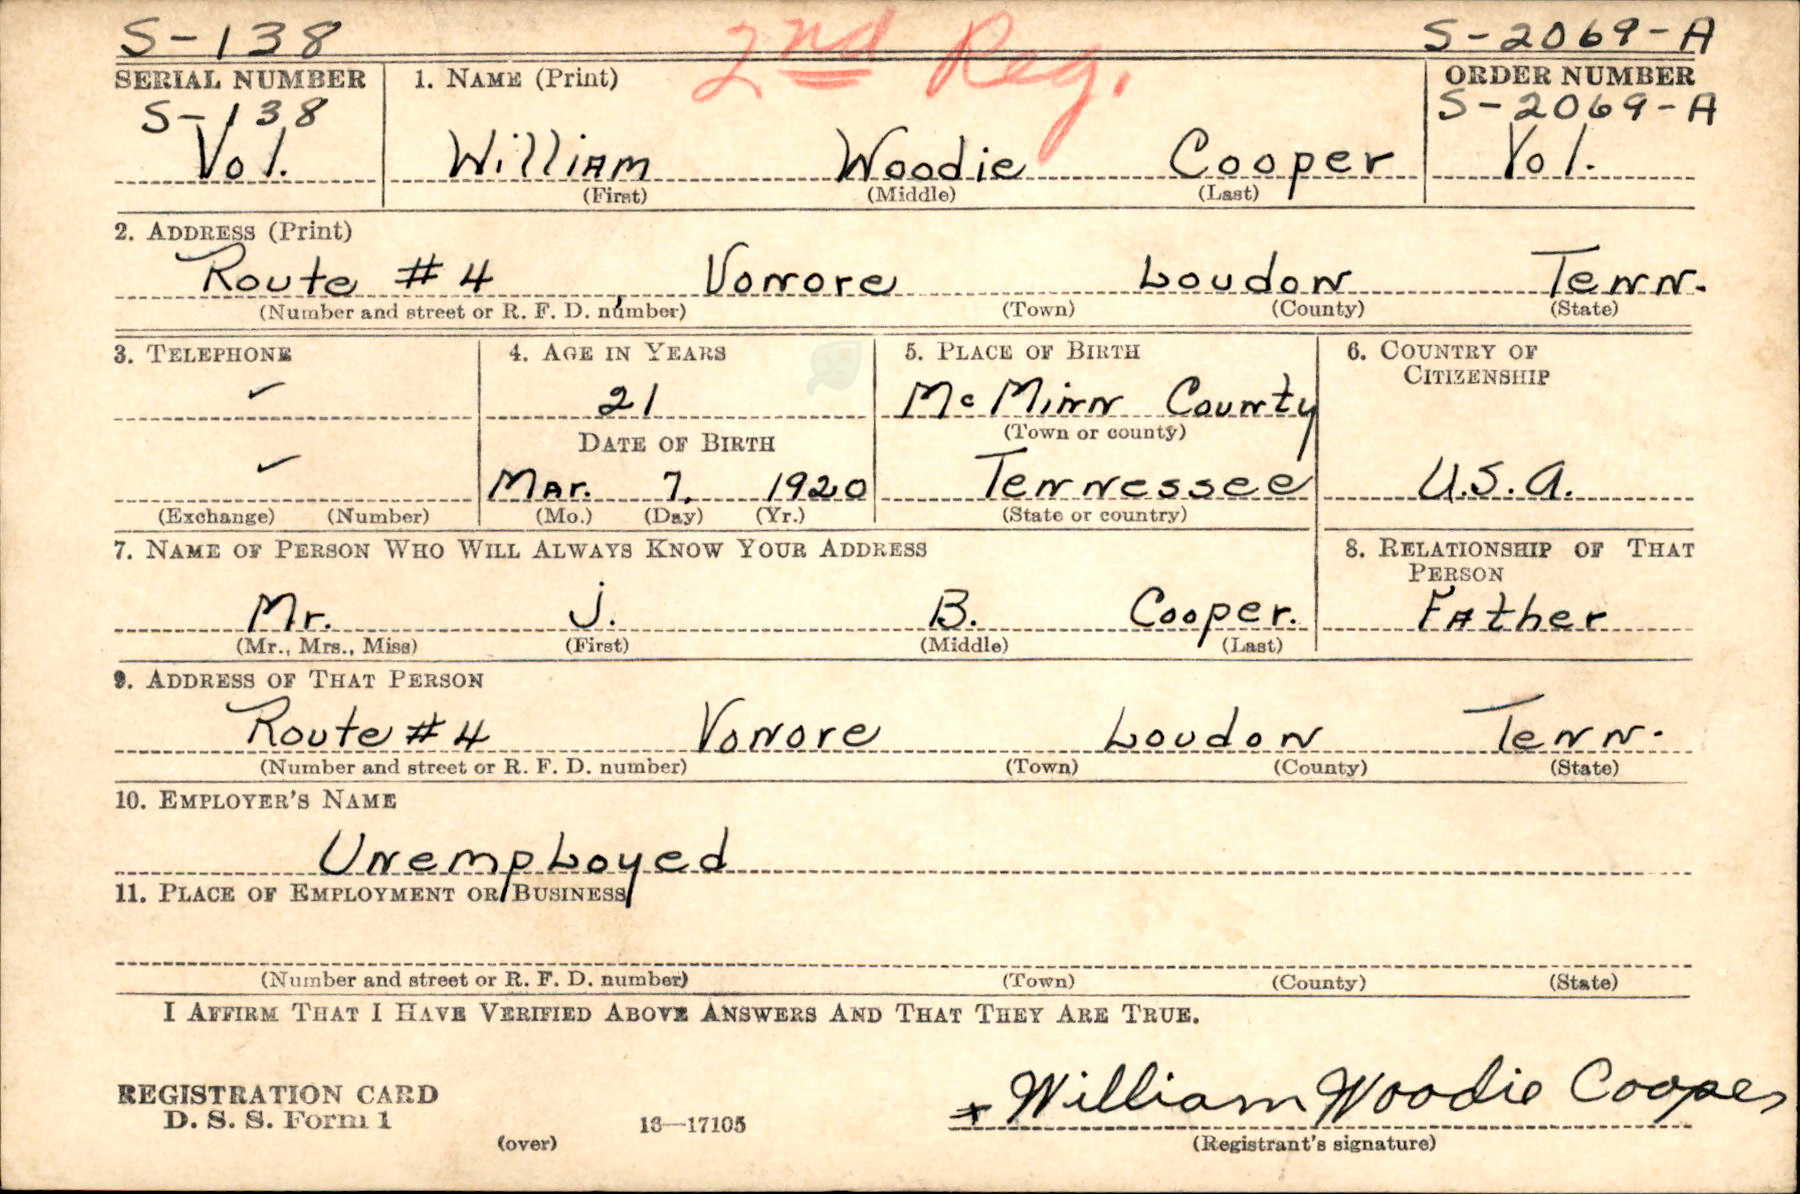 S-138 2nd Reg. S-2069-A
SERIAL NUMBER 1. NAME (Print) ORDER NUMBER
S-138 S-2069-A
Vol. William Woodie Cooper Vol.
(First) (Middle) (Last)
2. ADDRESS (Print)
Route #4, Vonore Loudon Tenn.
(Number and street or R. F. D. number) (Town) (County) (State)
3. TELEPHONE 4. AGE IN YEARS 5. PLACE OF BIRTH 6. COUNTRY OF
CITIZENSHIP
✓ 21 McMinn County
DATE OF BIRTH (Town or county)
✓ Mar. 7, 1920 Tennessee U.S.A.
(Exchange) (Number) (Mo.) (Day) (Yr.) (State or country)
7. NAME OF PERSON WHO WILL ALWAYS KNOW YOUR ADDRESS 8. RELATIONSHIP OF THAT
PERSON
Mr. J. B. Cooper. Father
(Mr., Mrs., Miss) (First) (Middle) (Last)
9. ADDRESS OF THAT PERSON
Route #4 Vonore Loudon Tenn.
(Number and street or R. F. D. number) (Town) (County) (State)
10. EMPLOYER'S NAME
Unemployed
11. PLACE OF EMPLOYMENT OR BUSINESS
(Number and street or R. F. D. number) (Town) (County) (State)
I AFFIRM THAT I HAVE VERIFIED ABOVE ANSWERS AND THAT THEY ARE TRUE.
REGISTRATION CARD
D. S. S. Form 1 16—17105 x William Woodie Cooper
(over) (Registrant's signature)